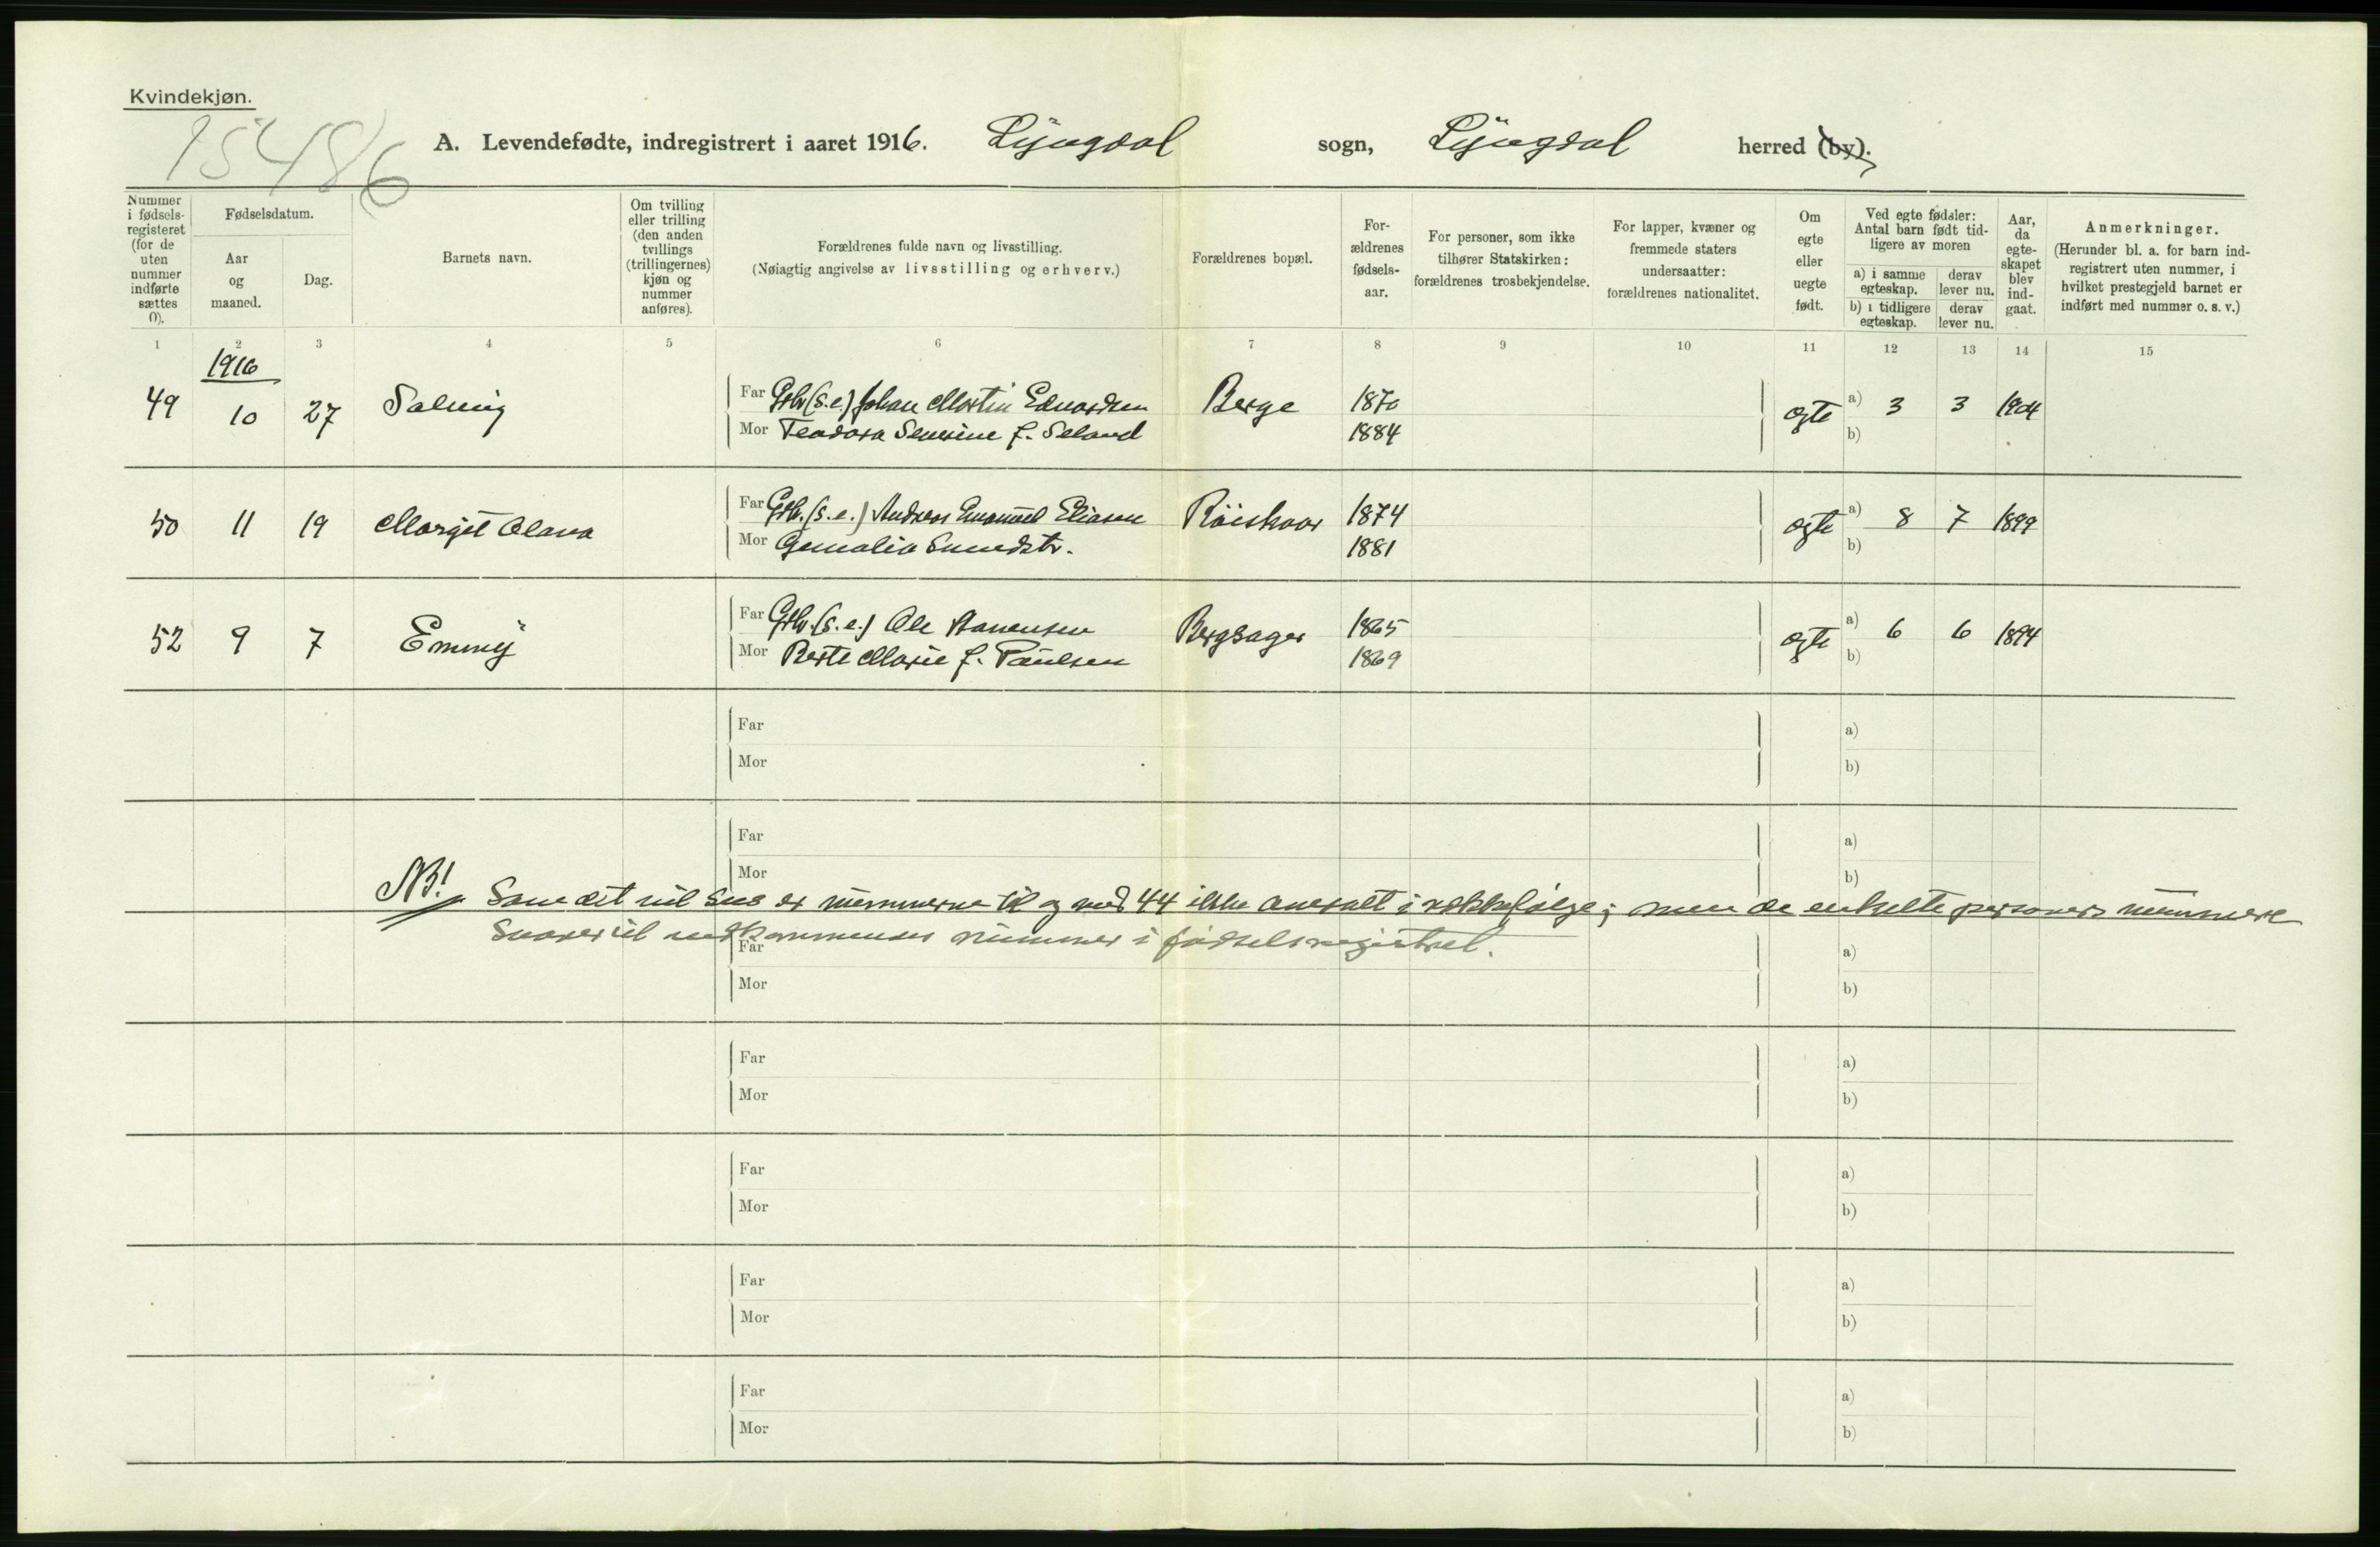 Kvindekjøn.
15486
A. Levendefødte, indregistrert i aaret 1916. Lyngdal sogn, Lyngdal herred (by).
Nummer i fødselsregisteret (for de uten nummer indførte sættes 0).
Fødselsdatum.
Aar og maaned.
Dag.
Barnets navn.
Om tvilling eller trilling (den anden tvillings (trillingernes) kjøn og nummer anføres).
Forældrenes fulde navn og livsstilling.
(Nøiagtig angivelse av livsstilling og erhverv.)
Forældrenes bopæl.
Forældrenes fødselsaar.
For personer, som ikke tilhører Statskirken: forældrenes trosbekjendelse.
For lapper, kvæner og fremmede staters undersaatter: forældrenes nationalitet.
Om egte eller uegte født.
Ved egte fødsler: Antal barn født tidligere av moren
a) i samme egteskap.
derav lever nu.
b) i tidligere egteskap.
derav lever nu.
Aar, da egteskapet blev indgaat.
Anmerkninger.
(Herunder bl. a. for barn indregistrert uten nummer, i hvilket prestegjeld barnet er indført med nummer o. s. v.)
1 2 3 4 5 6 7 8 9 10 11 12 13 14 15
1916
49 10 27 Salmig Far Grbr. (s.e.) Johan Martin Edvardsen Berge 1870 egte a) 3 3 1904
Mor Teodora Severine f. Seland 1884 b)
50 11 19 Margit Olava Far Grbr. (s.e.) Andreas Emanuel Eliasen Röiskaar 1874 egte a) 8 7 1899
Mor Gemalia Sunedstr. 1881 b)
52 9 7 Emmy Far Grbr. (s.e.) Ole Aanensen Bergsager 1865 egte a) 6 6 1894
Mor Berte Marie f. Paulsen 1869 b)
Far a)
Mor b)
Far a)
Mor b)
NB! Som det vil sees er numrene til og med 44 ikke anvendt i rækkefølge; men de enkelte personers nummere
svarer til vedkommendes nummer i fødselsregistret.
Far a)
Mor b)
Far a)
Mor b)
Far a)
Mor b)
Far a)
Mor b)
Far a)
Mor b)